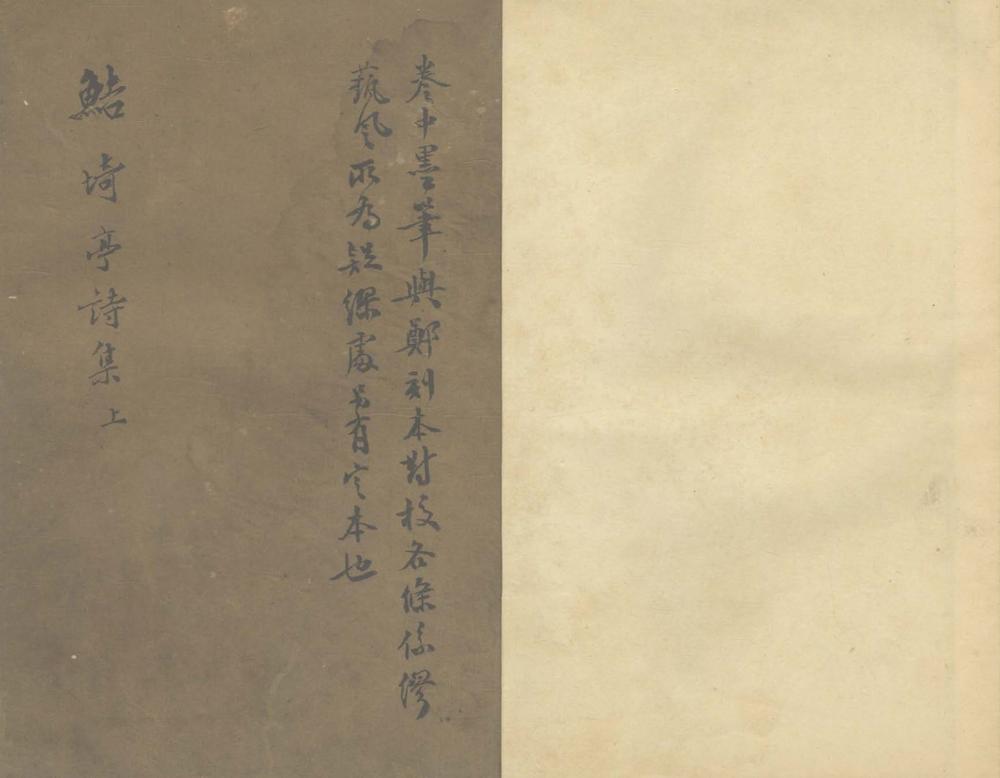 卷中墨筆與鄭刻本對校各條係繆
藝風所為疑繆處另有定本也
鮚埼亭詩集 上